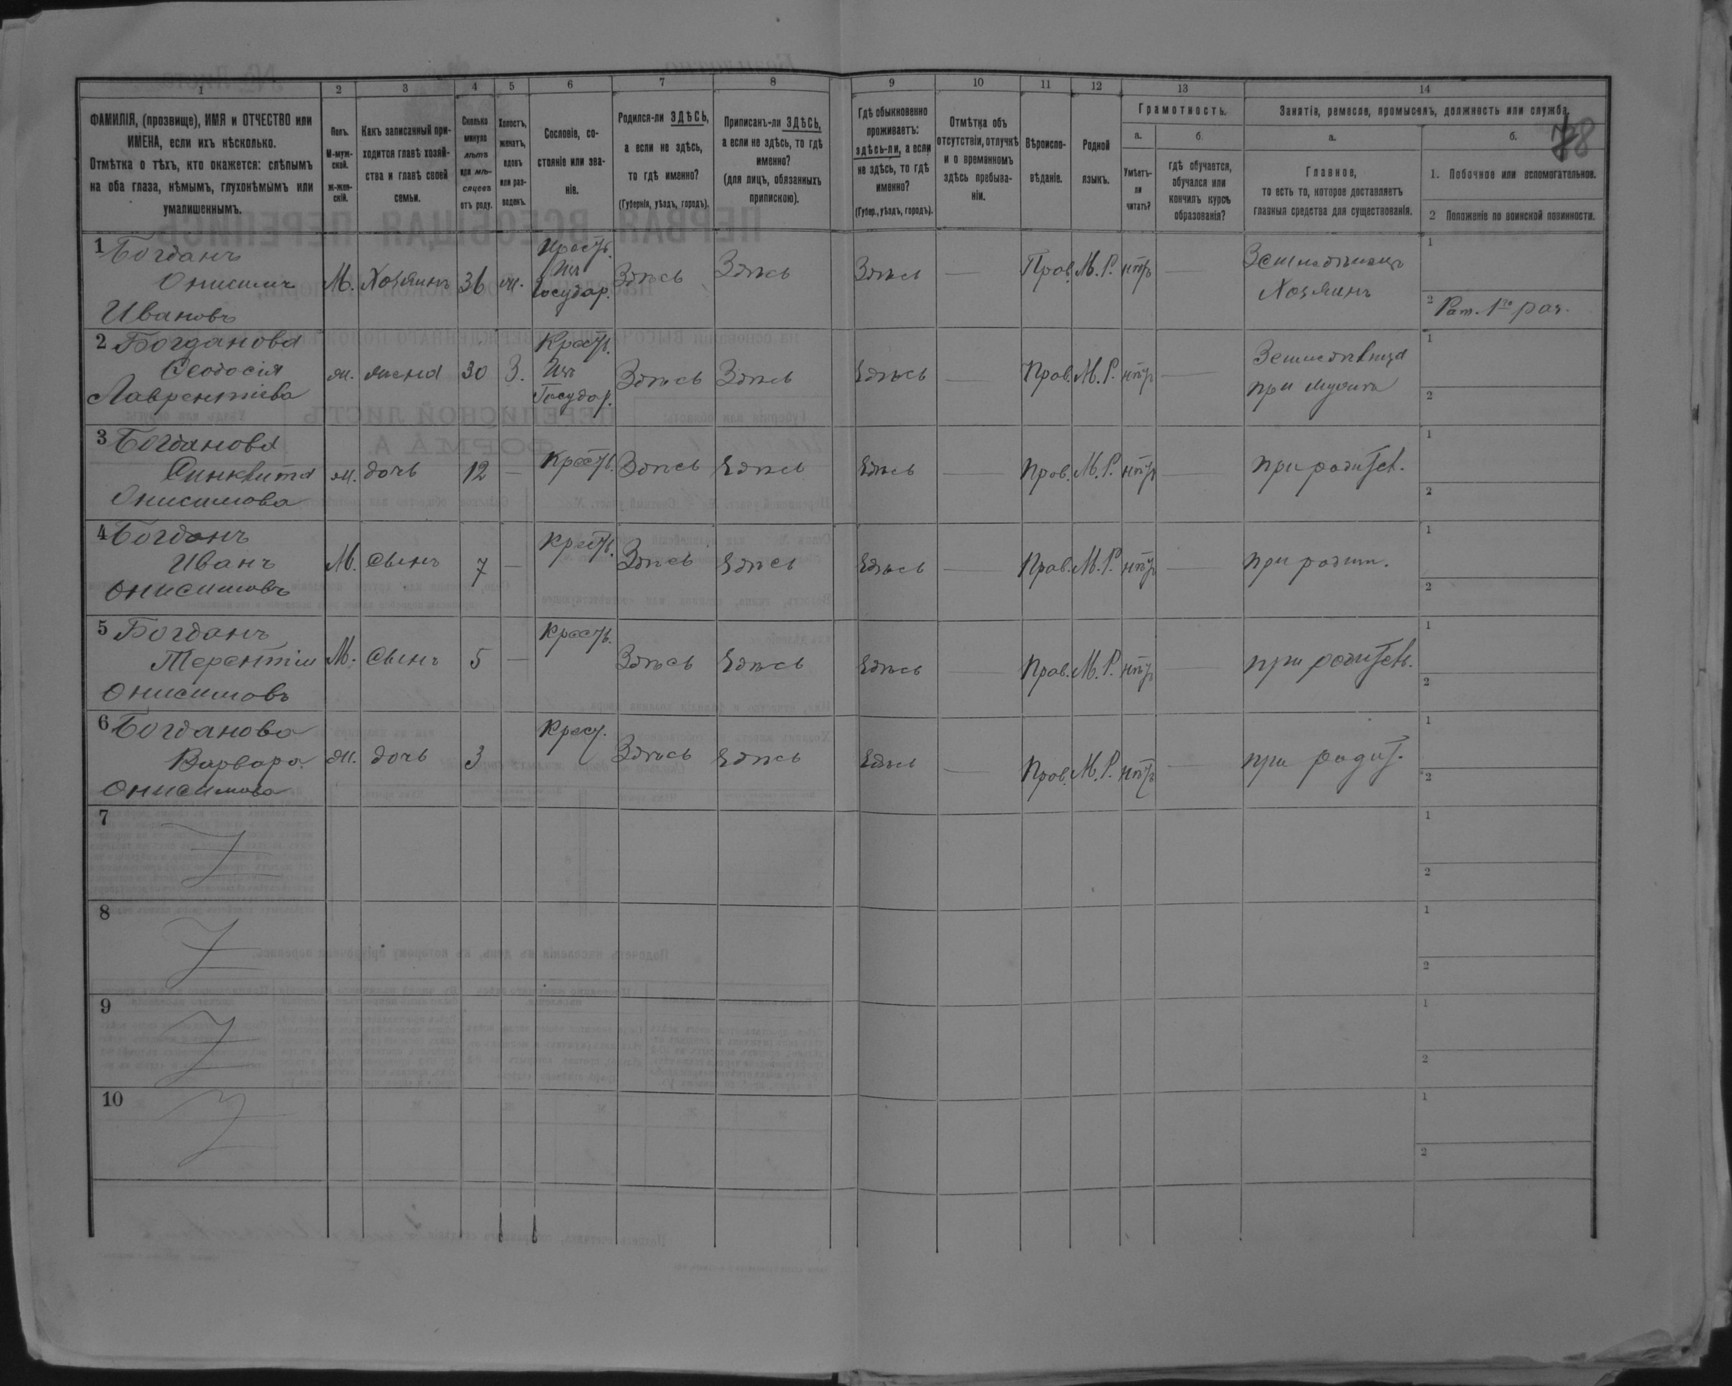 1 2 3 4 5 6 7 8 9 10 11 12 13 14
ФАМИЛІЯ, (прозвище), ИМЯ и ОТЧЕСТВО или
ИМЕНА, если ихъ нѣсколько.
Отмѣтка о тѣхъ, кто окажется: слѣпымъ
на оба глаза, нѣмымъ, глухонѣмымъ или
умалишеннымъ.
Полъ.
М-муж-
ской.
ж-жен-
скій.
Какъ записанный при-
ходится главѣ хозяй-
ства и главѣ своей
семьи.
Сколько
минуло
лѣтъ
или мѣ-
сяцевъ
отъ роду.
Холостъ,
женатъ,
вдовъ
или раз-
веденъ.
Сословіе, со-
стояніе или зва-
ніе.
Родился-ли ЗДѢСЬ,
а если не здѣсь,
то гдѣ именно?
(Губернія, уѣздъ, городъ).
Приписанъ-ли ЗДѢСЬ,
а если не здѣсь, то гдѣ
именно?
(для лицъ, обязанныхъ
припискою).
Гдѣ обыкновенно
проживаетъ:
здѣсь-ли, а если
не здѣсь, то гдѣ
именно?
(Губер., уѣздъ, городъ).
Отмѣтка объ
отсутствіи, отлучкѣ
и о временномъ
здѣсь пребыва-
ніи.
Вѣроиспо-
вѣданіе.
Родной
языкъ.
Грамотность.
а.
Умѣетъ-
ли
читать?
б.
гдѣ обучается,
обучался или
кончилъ курсъ
образованія?
Занятія, ремесла, промыселъ, должность или служба.
78
а.
Главное,
то есть то, которое доставляетъ
главныя средства для существованія.
б.
1. Побочное или вспомогательное.
2 Положеніе по воинской повинности.
1 Богданъ
Онисимъ
Ивановъ
М. Хозяинъ 36 ж. Крестъ. Изъ Государ. Здѣсь Здѣсь Здѣсь — Прав. М.Р. нтъ —
Хозяинъ
1
2 Рат. 1го раз.
2 Богданова
Феодосія
Лаврентіева
ж. жена 30 З. Крестъ. Изъ Государ. Здѣсь Здѣсь Здѣсь — Прав. М.Р. нтъ —
при мужѣ
1
2
3 Богданова
Онисимова
ж. дочь 12 — Крестъ. Здѣсь Здѣсь Здѣсь — Прав. М.Р. нтъ — при родител.
1
2
4 Богданъ
Иванъ
Онисимовъ
М. Сынъ 7 — Крестъ. Здѣсь Здѣсь Здѣсь — Прав. М.Р. нтъ — при родит.
1
2
5 Богданъ
Терентій
Онисимовъ
М. Сынъ 5 — Крестъ. Здѣсь Здѣсь Здѣсь — Прав. М.Р. нтъ — при родител.
1
2
6 Богданова
Варвара
Онисимова
ж. дочь 3 Крест. Здѣсь Здѣсь Здѣсь — Прав. М.Р. нтъ — при родит.
1
2
7
1
2
8
1
2
9
1
2
10
1
2